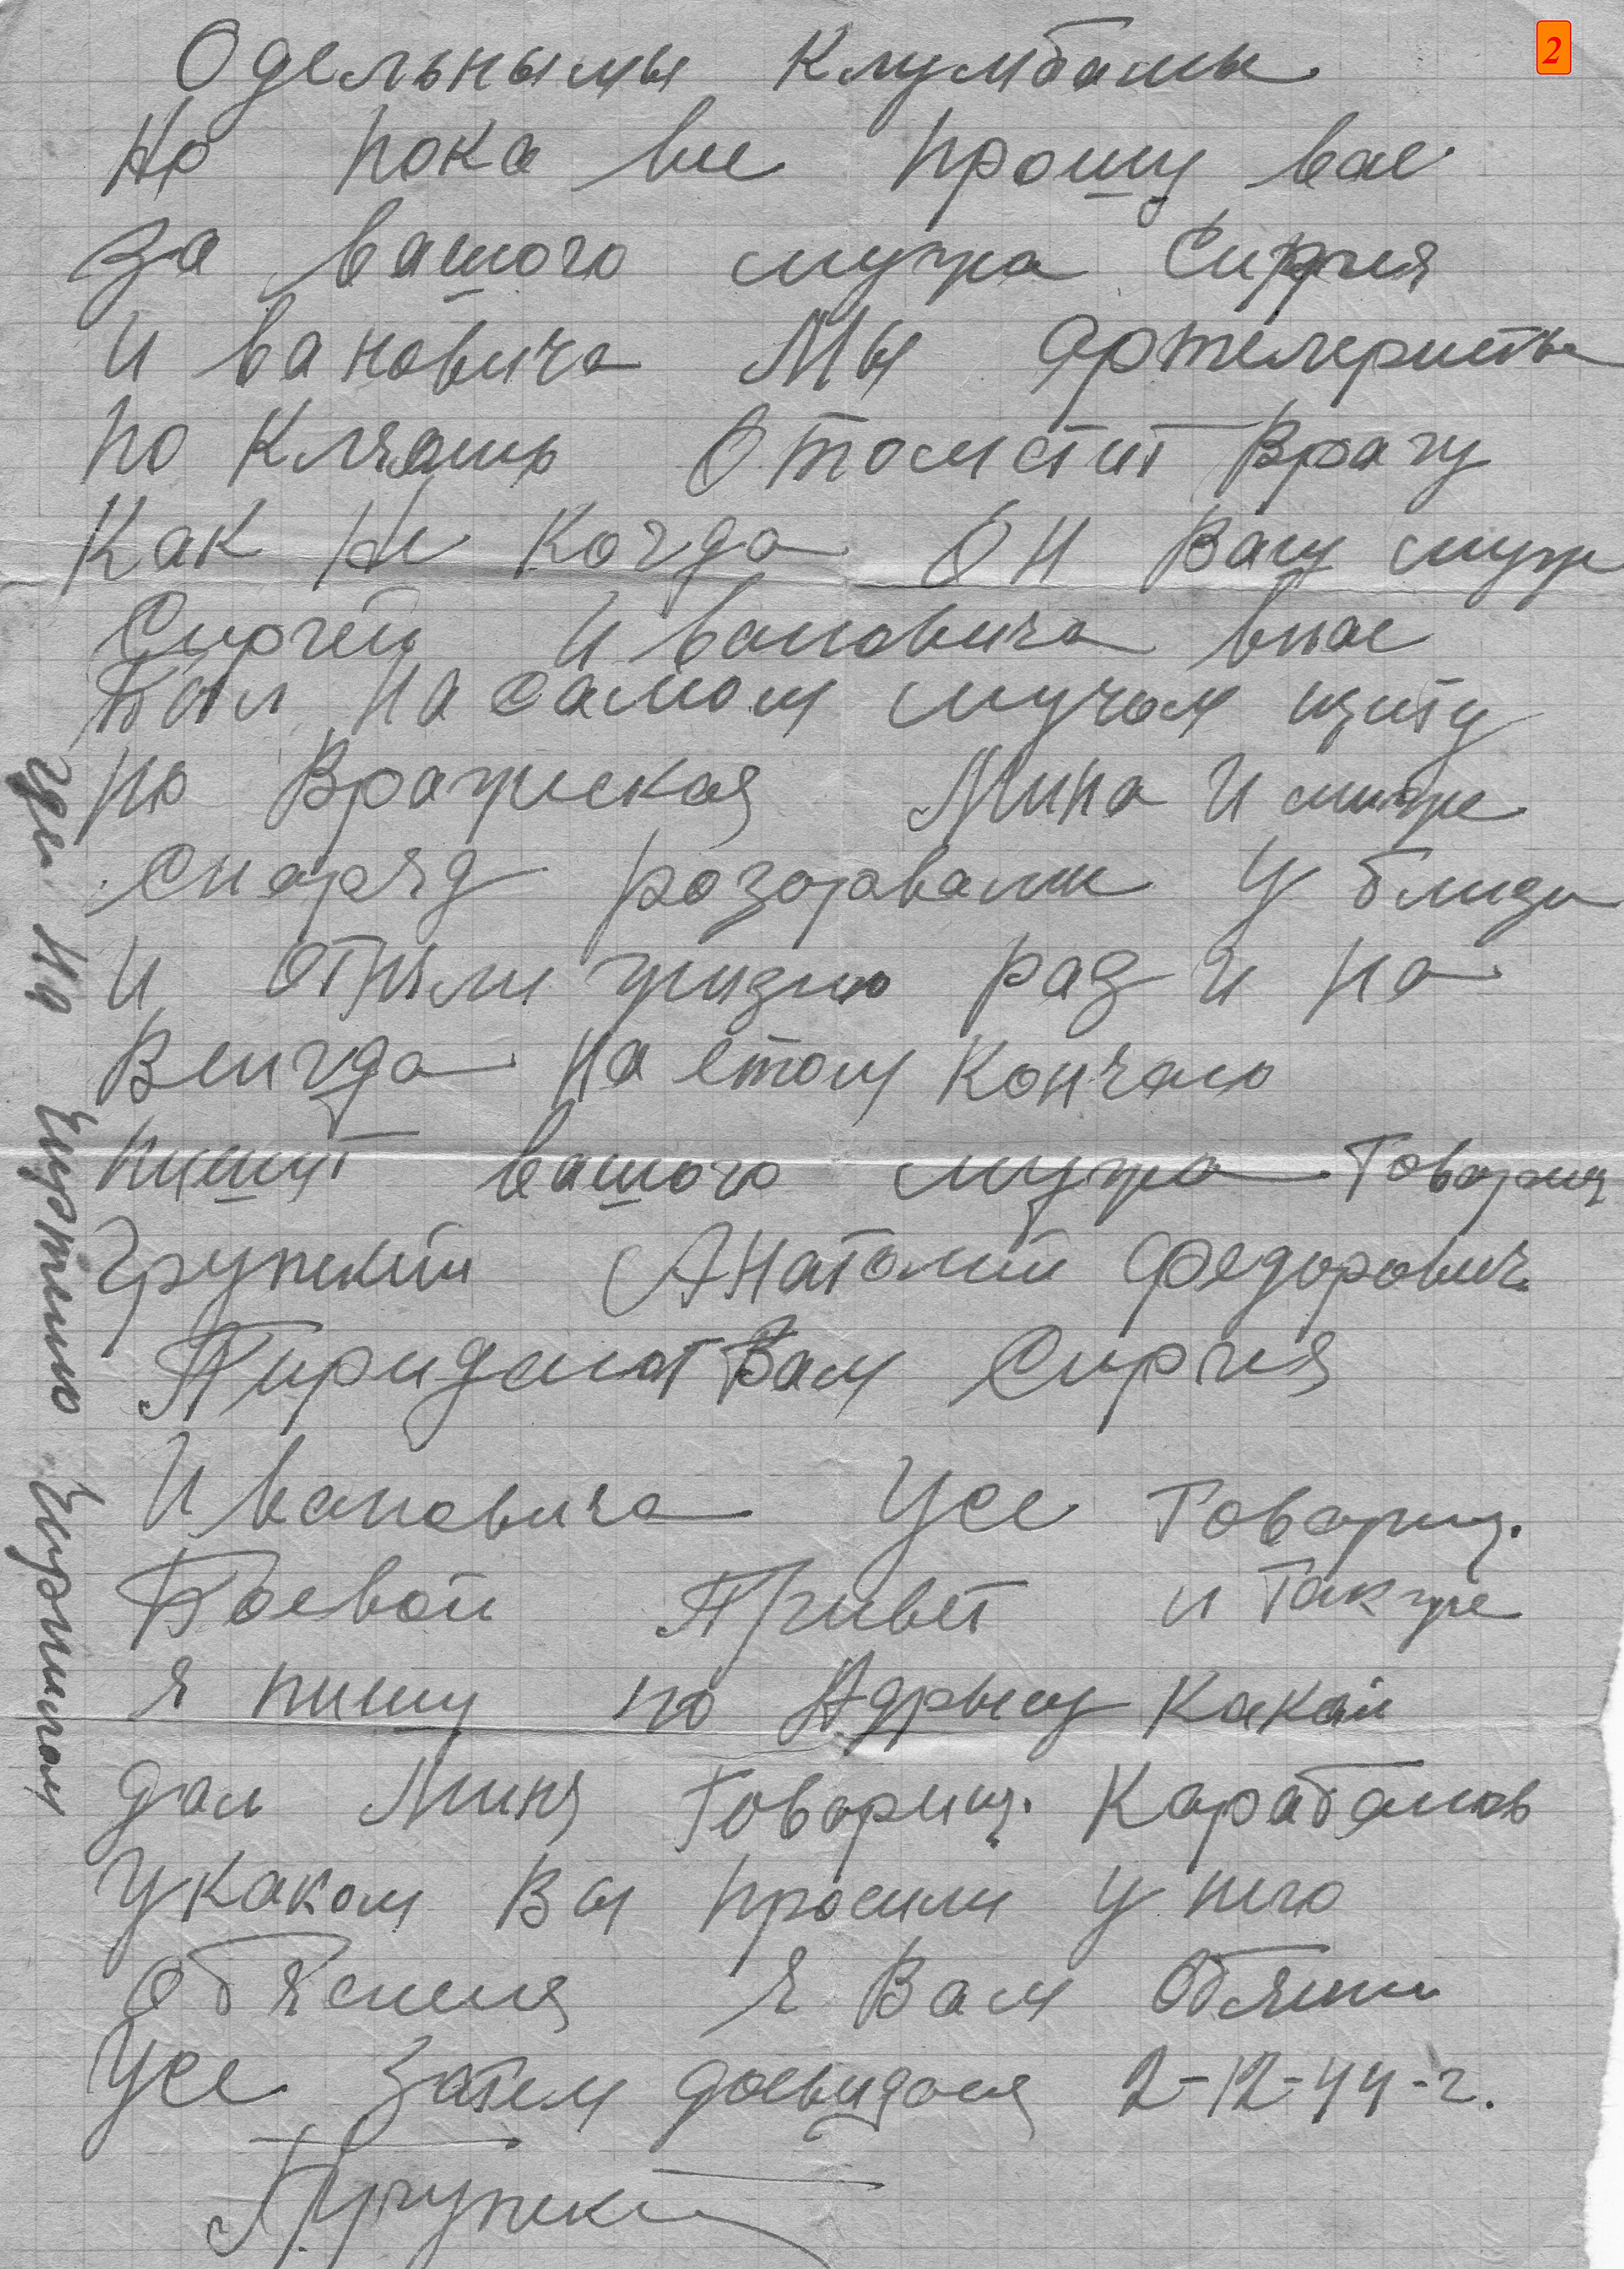 2
Одельнымы Клумбамы
Но пока вы прошу вас
За вашого мужа Сиргия
Ивановича Мы Артелеристы
по Клянь Отомстит Врагу
Как Не Когда Он Ваш муж
Сиргей Ивановича внас
был на самом лучом щиту
но Вражеская Мина И также
Снаряд розорвалы У близи
и отняли жизню раз и на
Всигда на етом Кончаю
пишит вашого мужа Товарищ
Анатолий Федорович
Пиридают Вам Сиргия
Ивановича Усе Товарищ.
Боевой Привет и также
я пишу по Адрысу Какой
дал Миня Товарищ. Карабанов
У каком Вы просили у него
Обяснения я Вам Обяснил
Усе Затем досвидания 2-12-44-г.